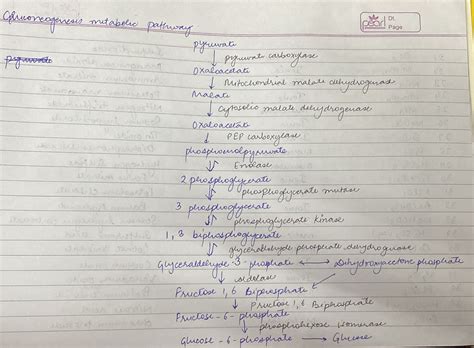 Gluconeogenesis metabolic pathway
pearl
Dt.
Page
pyruvate
pyruvate carboxylase
pyruvate
Oxaloacetate
Mitochondrial malate dehydrogenase
Malate
Cytosolic malate dehydrogenase
Oxaloacetate
PEP carboxylase
phosphoenolpyruvate
Enolase
2 phosphoglycerate
phosphoglycerate mutase
3 phosphoglycerate
phosphoglycerate kinase
1,3 biphosphoglycerate
glyceraldehyde phosphate dehydrogenase
Glyceraldehyde 3-phosphate Dihydroxyacetone phosphate
aldolase
Fructose 1,6 Biphosphate
Fructose 1,6 Biphosphate
Fructose-6-phosphate
phosphohexose isomerase
Glucose-6-phosphate Glucose